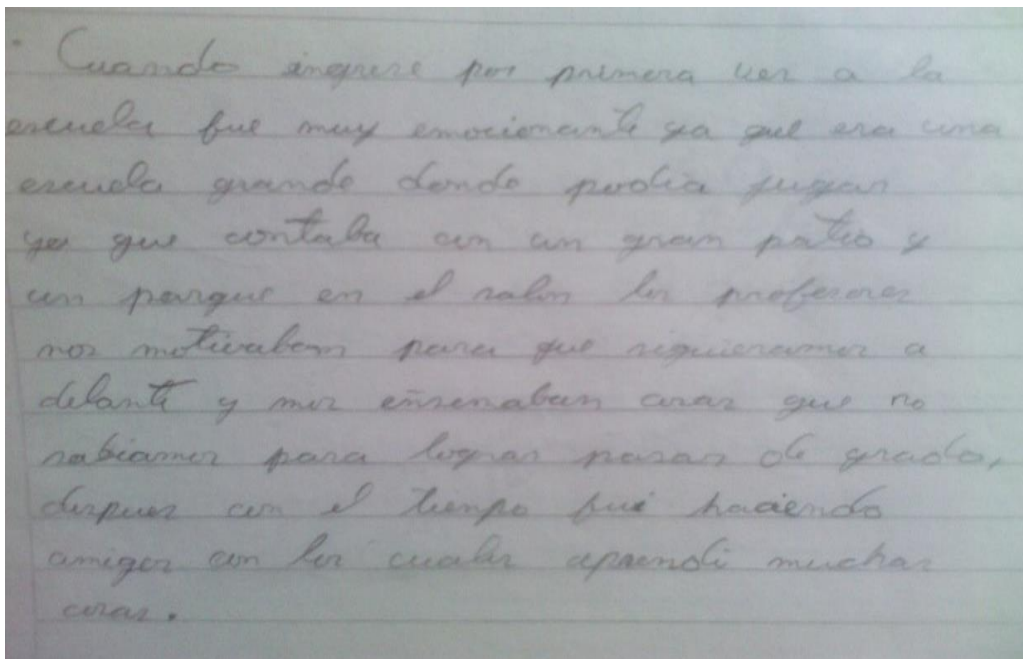 - Cuando ingrese por primera vez a la
escuela fue muy emocionante ya que era una
escuela grande donde podia jugar
ya que contaba con un gran patio y
un parque en el salon los profesores
nos motivaban para que siguieramos a
delante y nos enseñaban cosas que no
sabiamos para lograr pasar de grado,
despues con el tiempo fui haciendo
amigos con los cuales aprendi muchas
cosas.